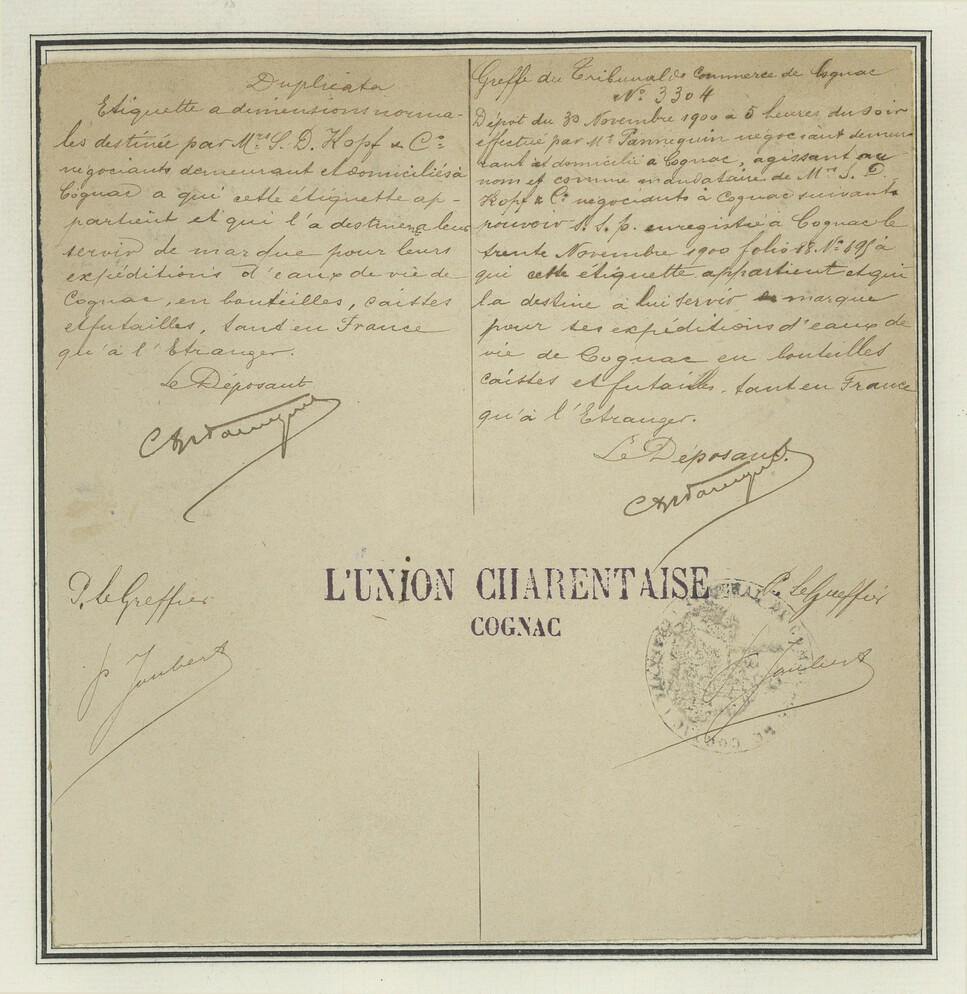 Duplicata
Etiquette a dimensions norma-
les destinée par Mrs S. D. Kopf & Cie
négociants demeurant et domiciliés à
Cognac a qui cette étiquette ap-
partient et qui l'a destinera leur
servir de marque pour leurs
expéditions d'eaux de vie de
Cognac, en bouteilles, caisses
et futailles, tant en France
qu'à l'Etranger.
Le Déposant
P. le Greffier
p Joubert
Greffe du Tribunal de Commerce de Cognac
No 3304
Dépot du 30 Novembre 1900 à 5 heures du soir
effectué par Mr Pannequin négociant demeu-
rant et domicilié à Cognac, agissant au
nom et comme mandataire de Mrs S. D.
Kopf & Cie négociants à Cognac suivant
pouvoir S. S. p. enregistré à Cognac le
trente Novembre 1900 folio 18. No 695 à
qui cette étiquette appartient et qui
la destine à lui servir marque
pour ses expéditions d'eaux de
vie de Cognac en bouteilles
caisses et futailles. tant en France
qu'à l'Etranger.
Le Déposant.
L'UNION CHARENTAISE
COGNAC
P. le Greffier
Joubert